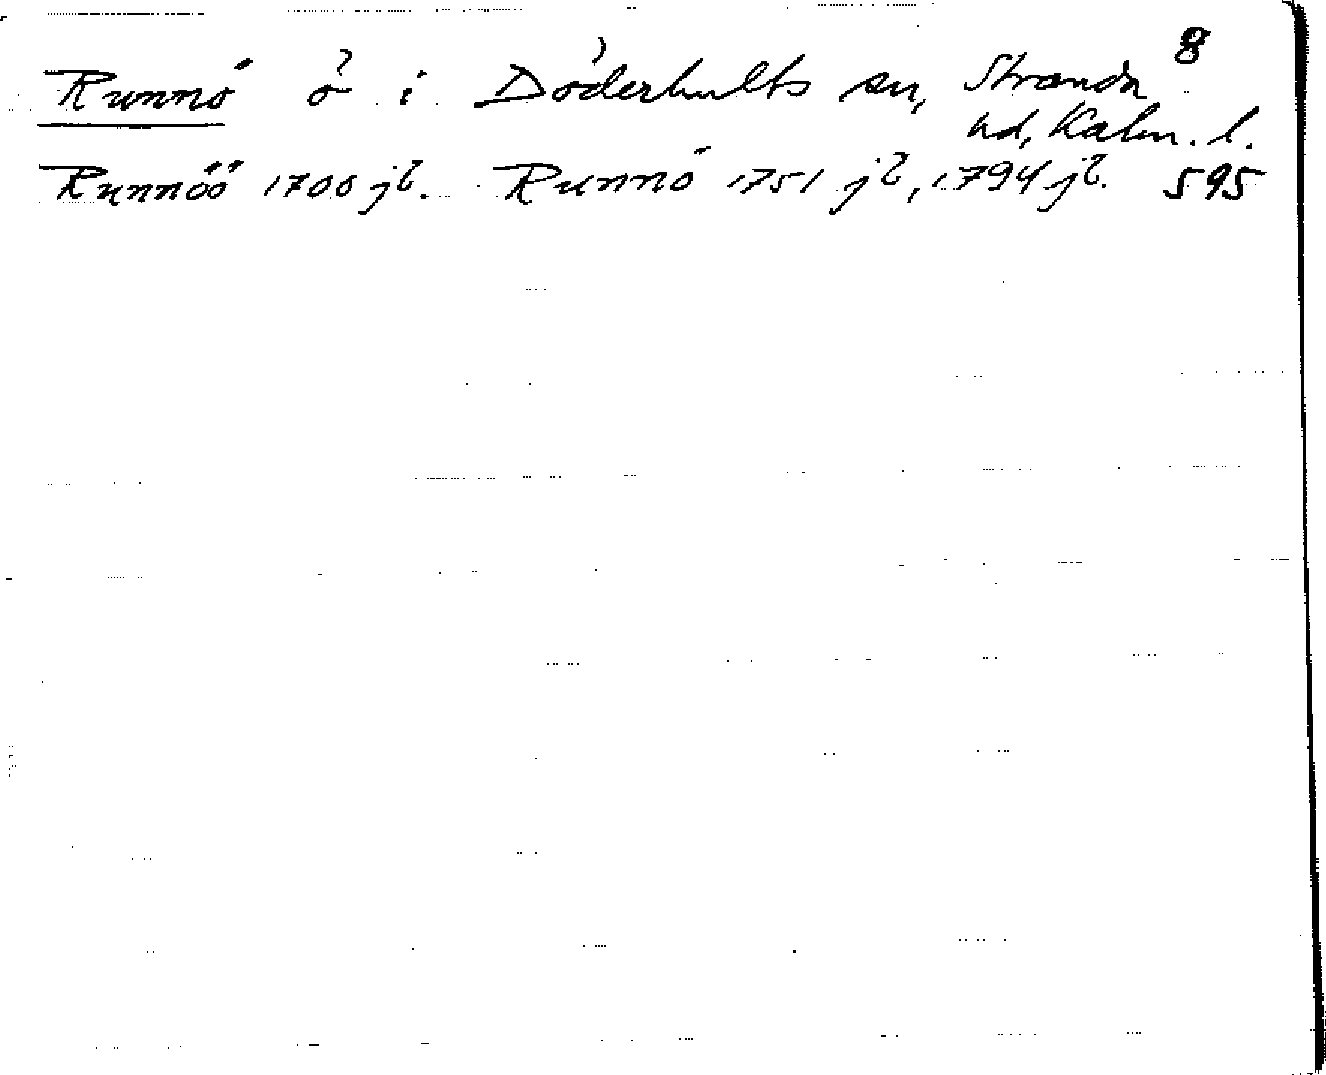 8
Runnö ö i Döderhults sn, Stranda
hd, Kalm. l.
Runnöö 1700 jb. Runnö 1751 jb, 1794 jb. 595